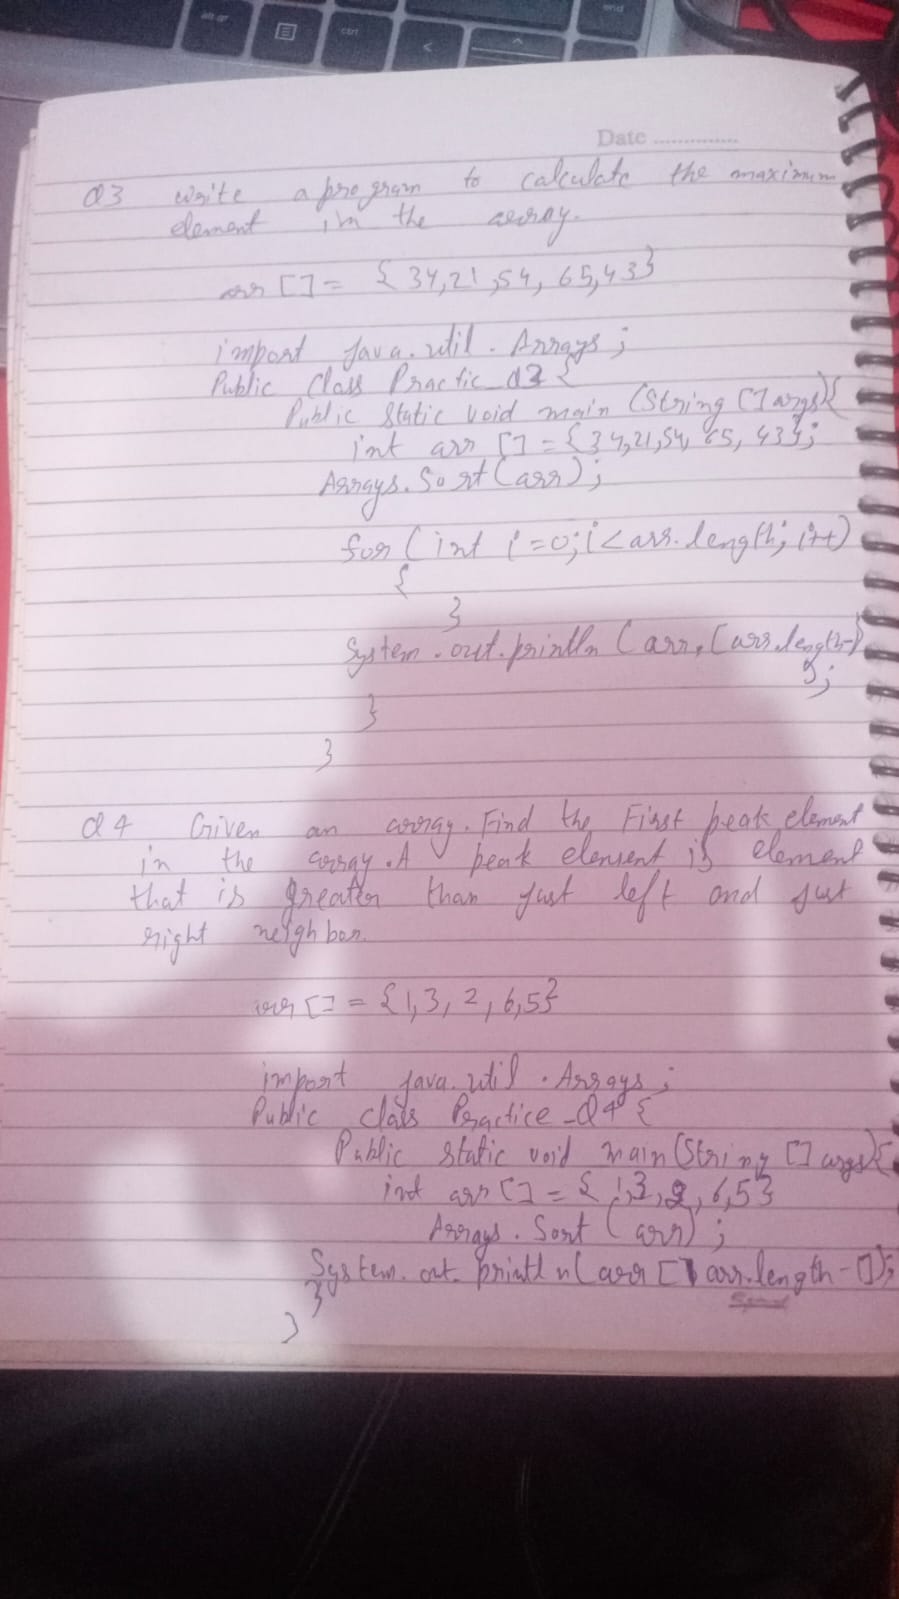 alt gr
ctrl
end
<
Date ..............
Q3 write a program to calculate the maximum
element in the array.
arr [] = {34,21,54, 65,43}
import java.util.Arrays;
Public Class Practic_Q3 {
Public Static void main (String [] args){
int arr [] = {34,21,54, 65, 43};
Arrays.Sort(arr);
for (int i=0;i<arr.length; i++)
{
}
System.out.println (arr,[arr.length-1]
);
}
}
Q4 Given an array. Find the First peak element
in the array. A peak element is element
that is greater than just left and just
right neighbor.
arr [] = {1,3, 2, 6,5}
import java.util.Arrays;
Public class Practice_Q4 {
Public static void main (String [] args){
int arr [] = {1,3,2,6,5}
Arrays.Sort (arr);
System.out.println(arr [ arr.length-1]);
}
}